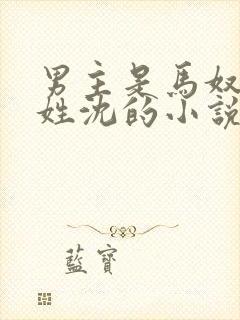 男主是馬奴
姓沈的小說
藍寶